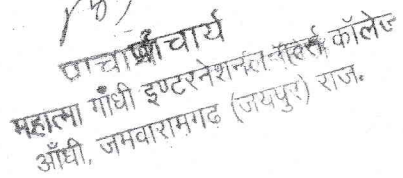 प्राचार्य
महात्मा गाँधी इण्टरनेशनल गर्ल्स कॉलेज
आँधी, जमवारामगढ (जयपुर) राज.